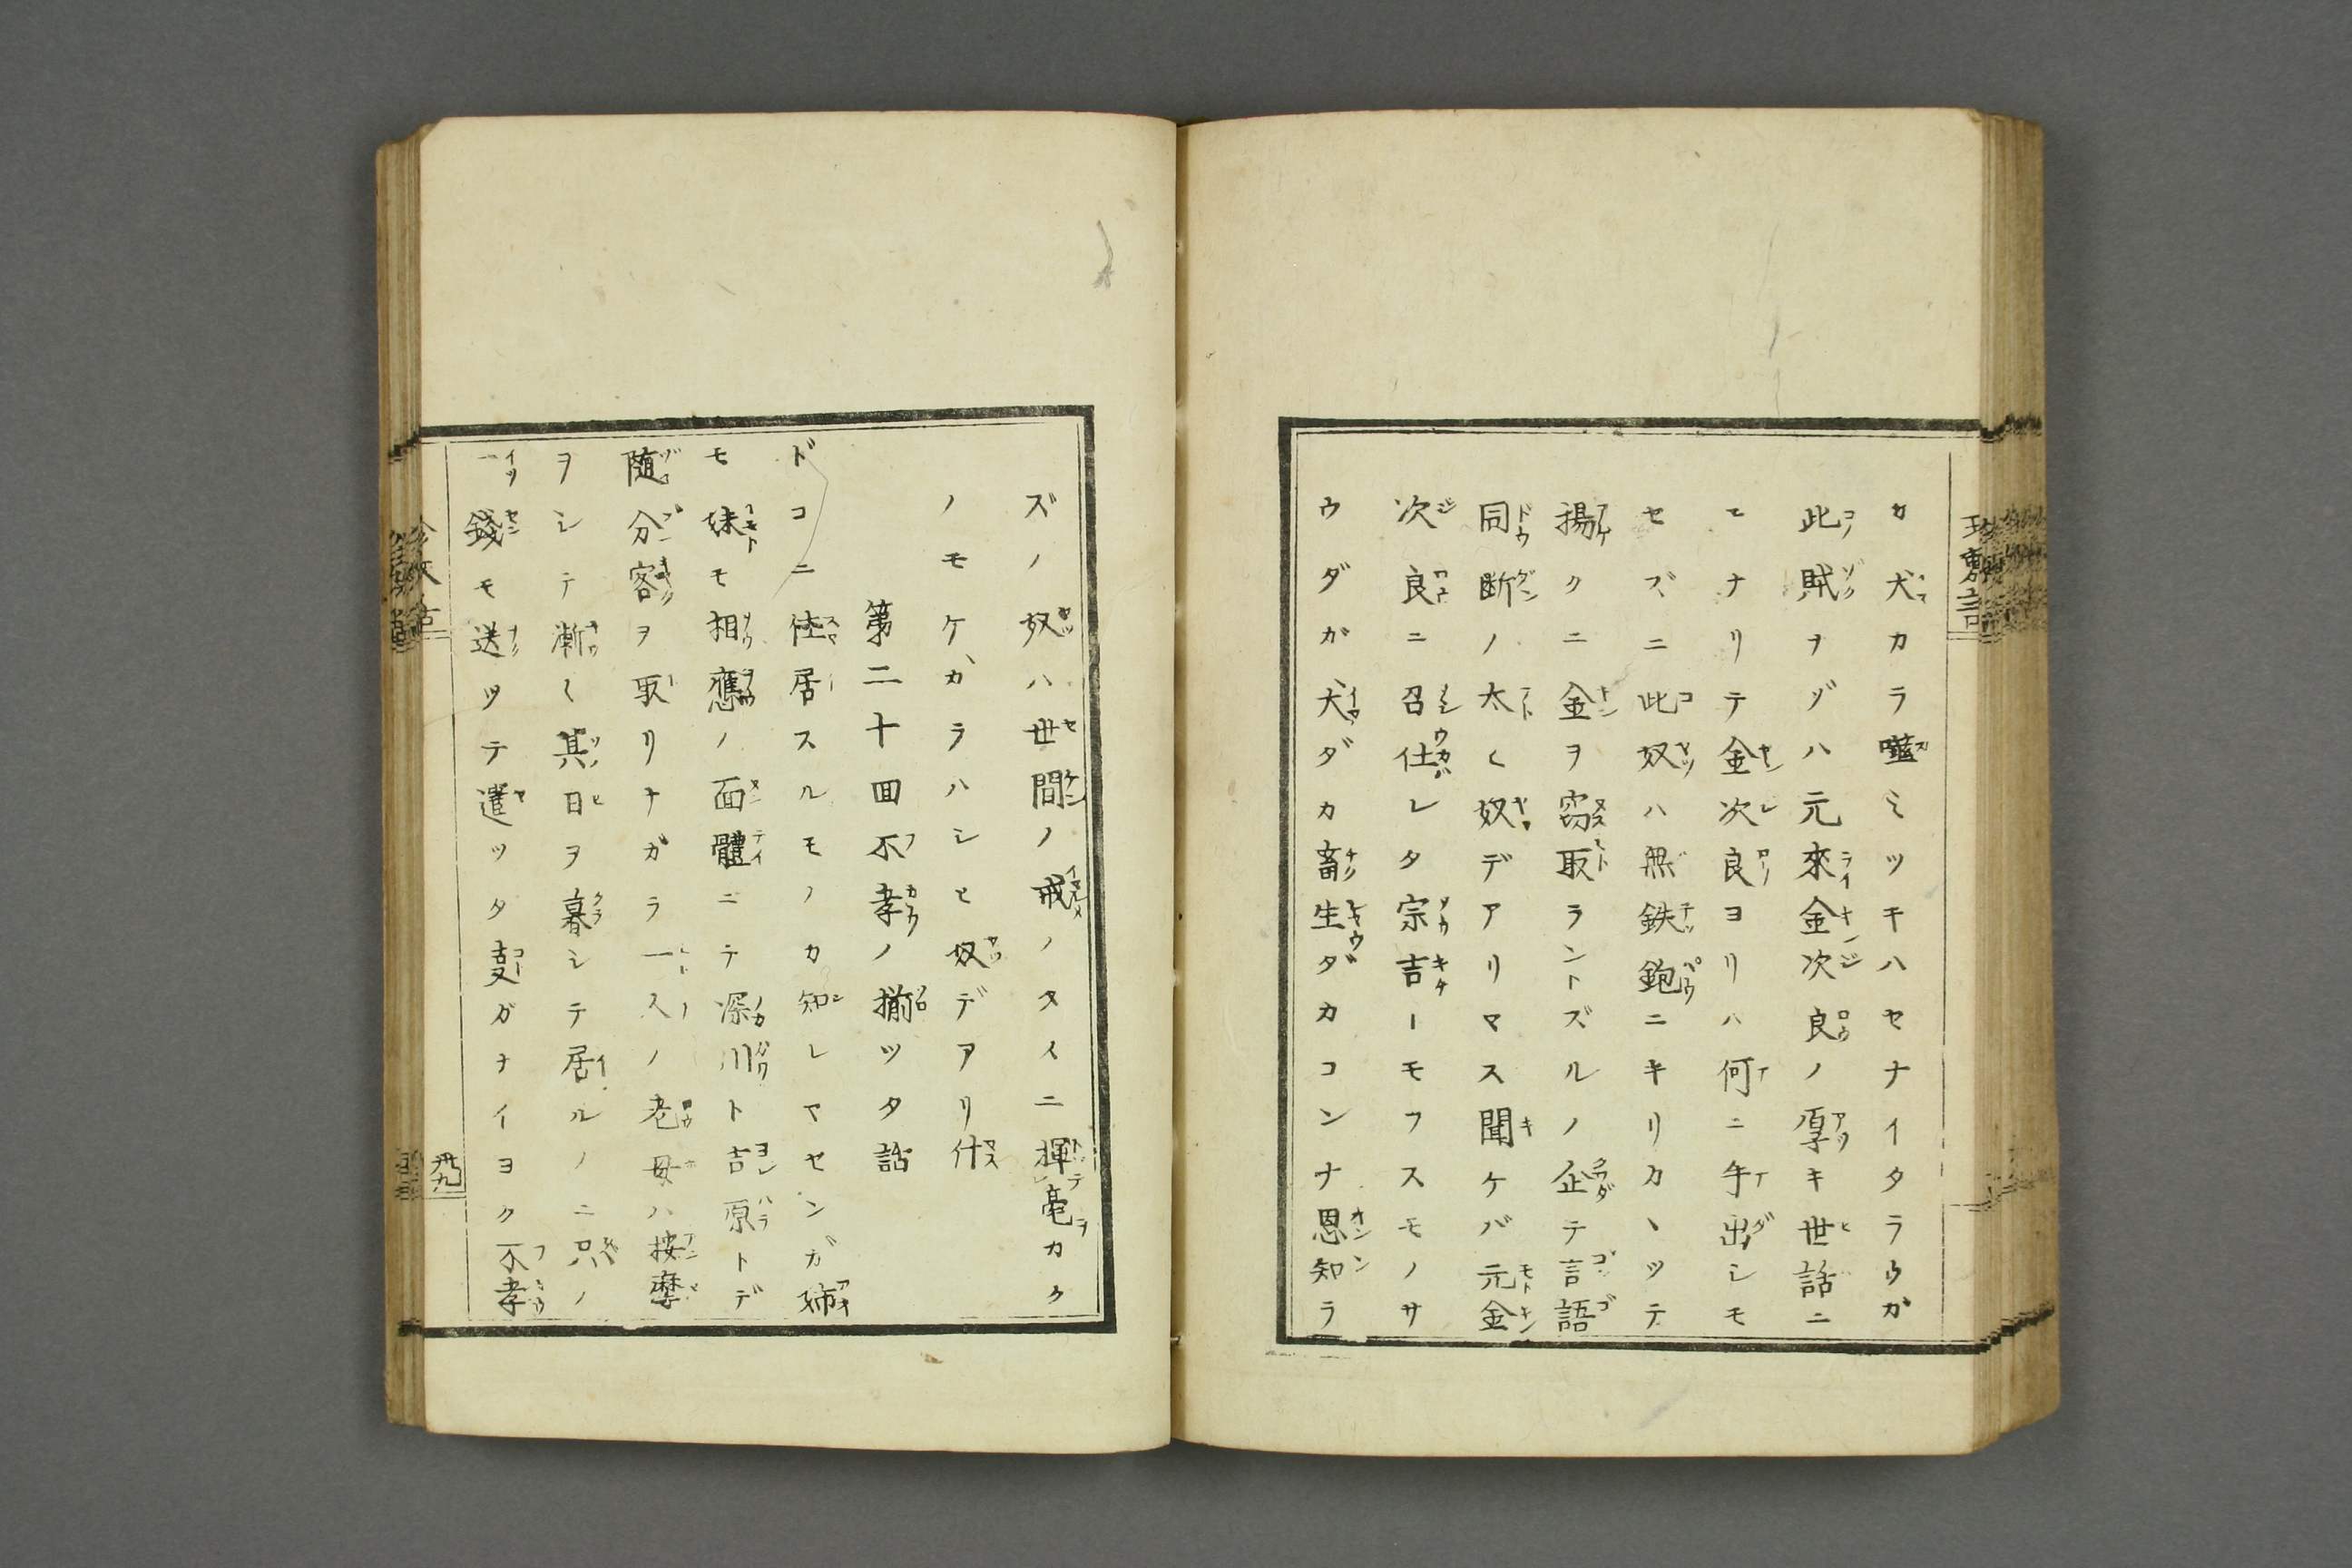 カ犬カラ囓ミツキハセナイタラウガ
此賊ヲゾハ元來金次良ノ厚キ世話ニ
ヒナリテ金次良ヨリハ何ニ手出シモ
セズニ此奴ハ無鉄鉋ニキリカヽツテ
揚クニ金ヲ窃取ラントズルノ企テ言語
同断ノ太く奴デアリマス聞ケバ元金
次良ニ召仕レタ宗吉ーモフスモノサ
ウダガ犬ダカ畜生ダカコンナ恩知ラ
ズノ奴ハ世間ノ戒ノタイニ揮毫カク
ノモケカラハシヒ奴デアリ什
第二十回不孝ノ揃ツタ話
ドコニ住居スルモノカ知レマセンガ姉
モ妹モ相應ノ面體ニテ深川ト吉原トデ
随分客ヲ取リナガラ一人ノ老母ハ按摩
ヲシテ漸く其日ヲ暮シテ居ルノニ只ノ
一錢モ送ツテ遣ツタ叓ガナイヨク不孝